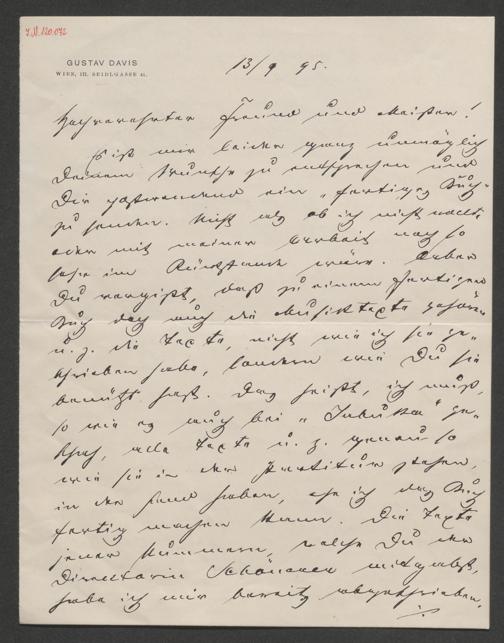 J.N. 120.072
GUSTAV DAVIS
WIEN, III. SEIDLGASSE
13/9 95.
Hochverehrter Freund und Meister!
Es ist mir leider ganz unmöglich
Deinem Wunsche zu entsprechen und
Dir postwendend ein „fertiges Buch"
zu senden. Nicht als ob ich nicht wollte
oder mit meiner Arbeit noch so
sehr im Rückstande wäre. Aber
Du vergißt, daß zu einem fertigen
Buch doch auch die Musiktexte gehören
u. z. die Texte, nicht wie ich sie ge-
schrieben habe, sondern wie Du sie
benützt hast. Das heißt, ich muß,
so wie es auch bei „Jabuka" ge-
schah, alle Texte u. z. genau so
wie sie in der Partitur stehen,
in der Hand haben, ehe ich das Buch
fertig machen kann. Die Texte
jener Nummern, welche Du der
Directorin Schönerer mitgabst,
habe ich mir bereits abgeschrieben.